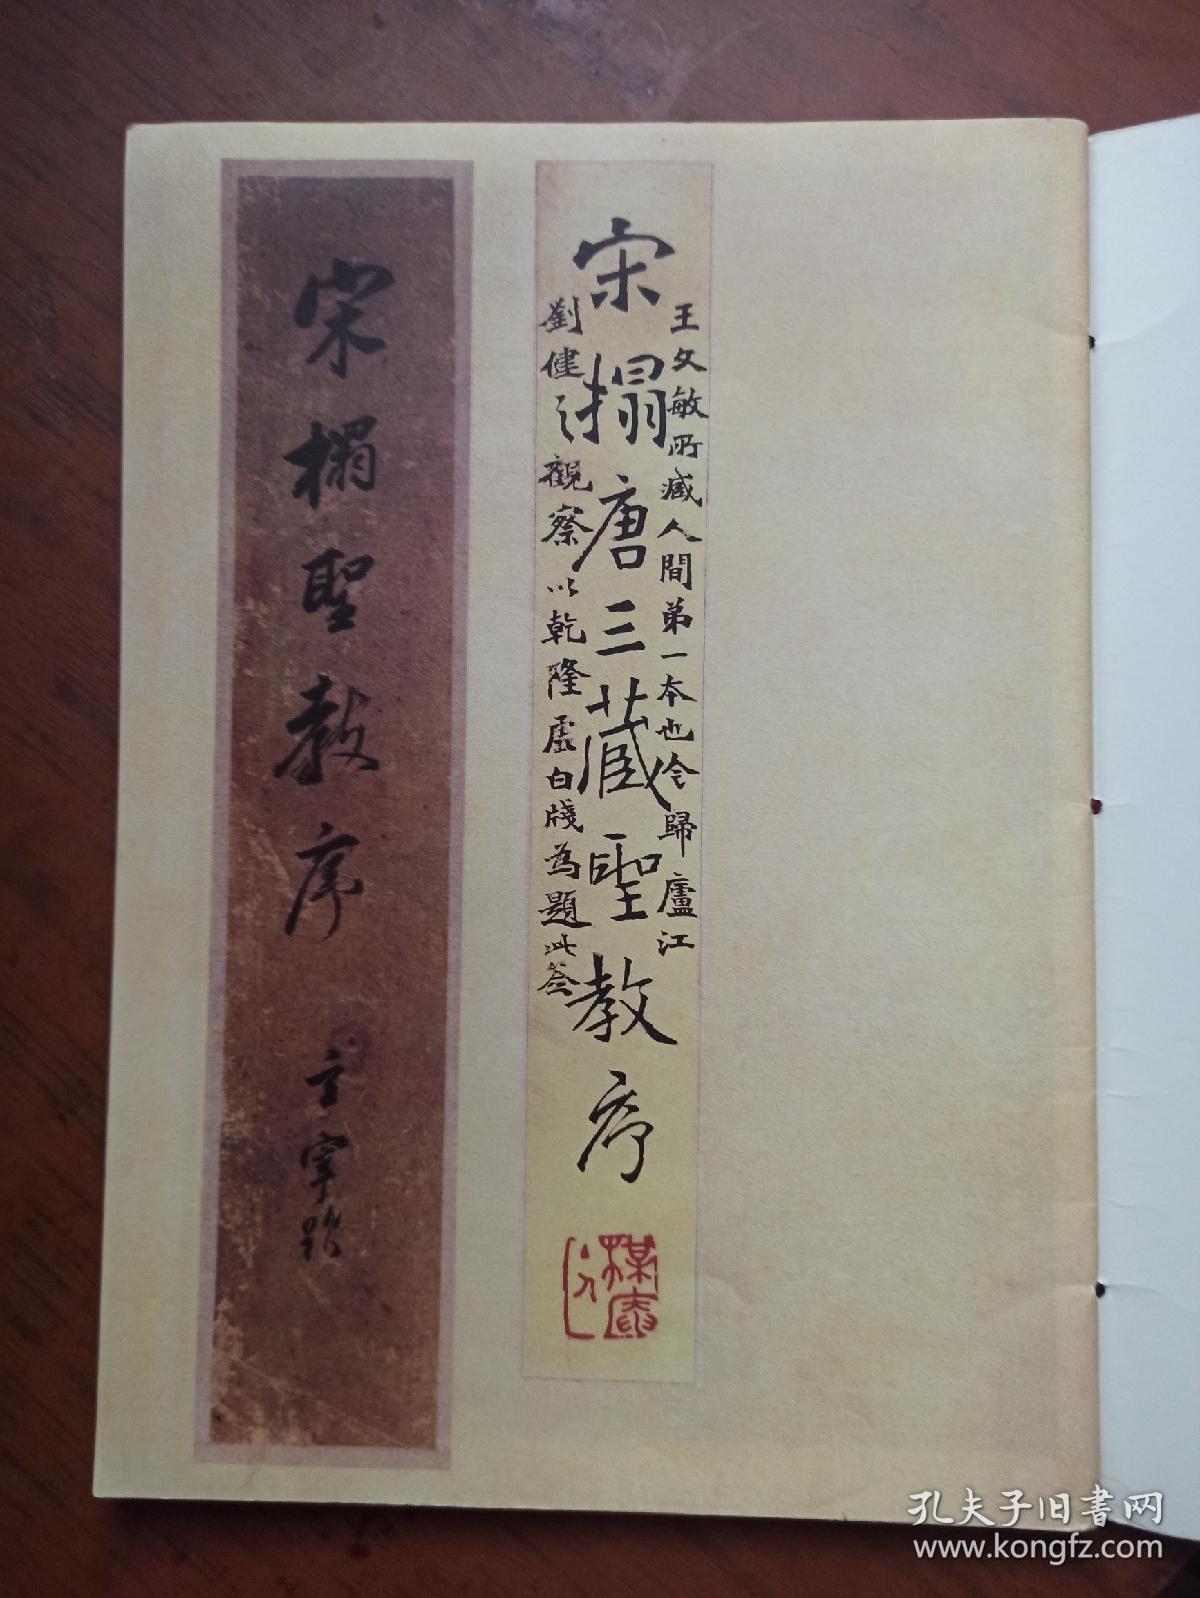 宋搨唐三藏聖教序
王文敏所藏人間弟一本也今歸廬江
劉健之觀察以乾隆虛白牋為題此簽
宋榻聖教序
玄宰題
孔夫子旧書网
www.kongfz.com